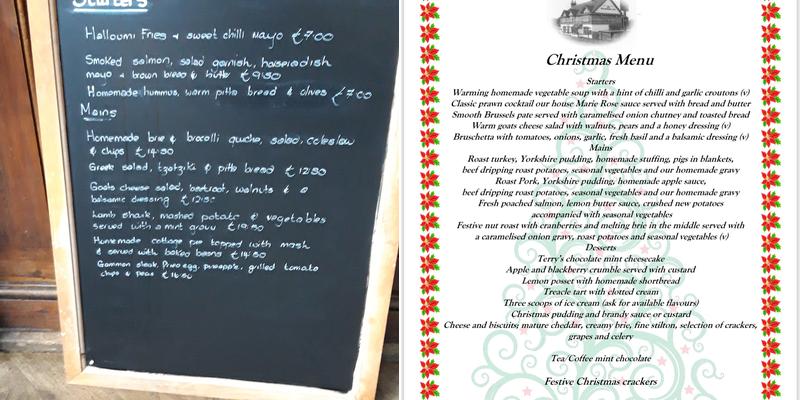 Starters
Halloumi Fries + sweet chilli mayo £7.00
Smoked salmon, salad garnish, horseradish
mayo + brown bread & butter £9.50
Homemade hummus, warm pitta bread & olives £7.00
Mains
Homemade brie & brocolli quiche, salad, coleslaw
& chips £14.50
Greek salad, tzatziki & pitta bread £12.50
Goats cheese salad, beetroot, walnuts & a
balsamic dressing £12.50
Lamb shank, mashed potato & vegetables
served with a mint gravy £19.50
Homemade cottage pie topped with mash
& served with baked beans £14.50
Gammon steak, fried egg, pineapple, grilled tomato
chips & peas £16.50
Christmas Menu
Starters
Warming homemade vegetable soup with a hint of chilli and garlic croutons (v)
Classic prawn cocktail our house Marie Rose sauce served with bread and butter
Smooth Brussels pate served with caramelised onion chutney and toasted bread
Warm goats cheese salad with walnuts, pears and a honey dressing (v)
Bruschetta with tomatoes, onions, garlic, fresh basil and a balsamic dressing (v)
Mains
Roast turkey, Yorkshire pudding, homemade stuffing, pigs in blankets,
beef dripping roast potatoes, seasonal vegetables and our homemade gravy
Roast Pork, Yorkshire pudding, homemade apple sauce,
beef dripping roast potatoes, seasonal vegetables and our homemade gravy
Fresh poached salmon, lemon butter sauce, crushed new potatoes
accompanied with seasonal vegetables
Festive nut roast with cranberries and melting brie in the middle served with
a caramelised onion gravy, roast potatoes and seasonal vegetables (v)
Desserts
Terry's chocolate mint cheesecake
Apple and blackberry crumble served with custard
Lemon posset with homemade shortbread
Treacle tart with clotted cream
Three scoops of ice cream (ask for available flavours)
Christmas pudding and brandy sauce or custard
Cheese and biscuits; mature cheddar, creamy brie, fine stilton, selection of crackers,
grapes and celery
Tea/Coffee mint chocolate
Festive Christmas crackers